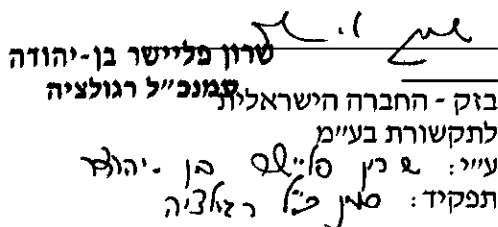 שרון פליישר בן-יהודה
סמנכ"ל רגולציה
בזק - החברה הישראלית
לתקשורת בע"מ
ע"י: שרון פליישר בן-יהודה
תפקיד: סמנכ"ל רגולציה